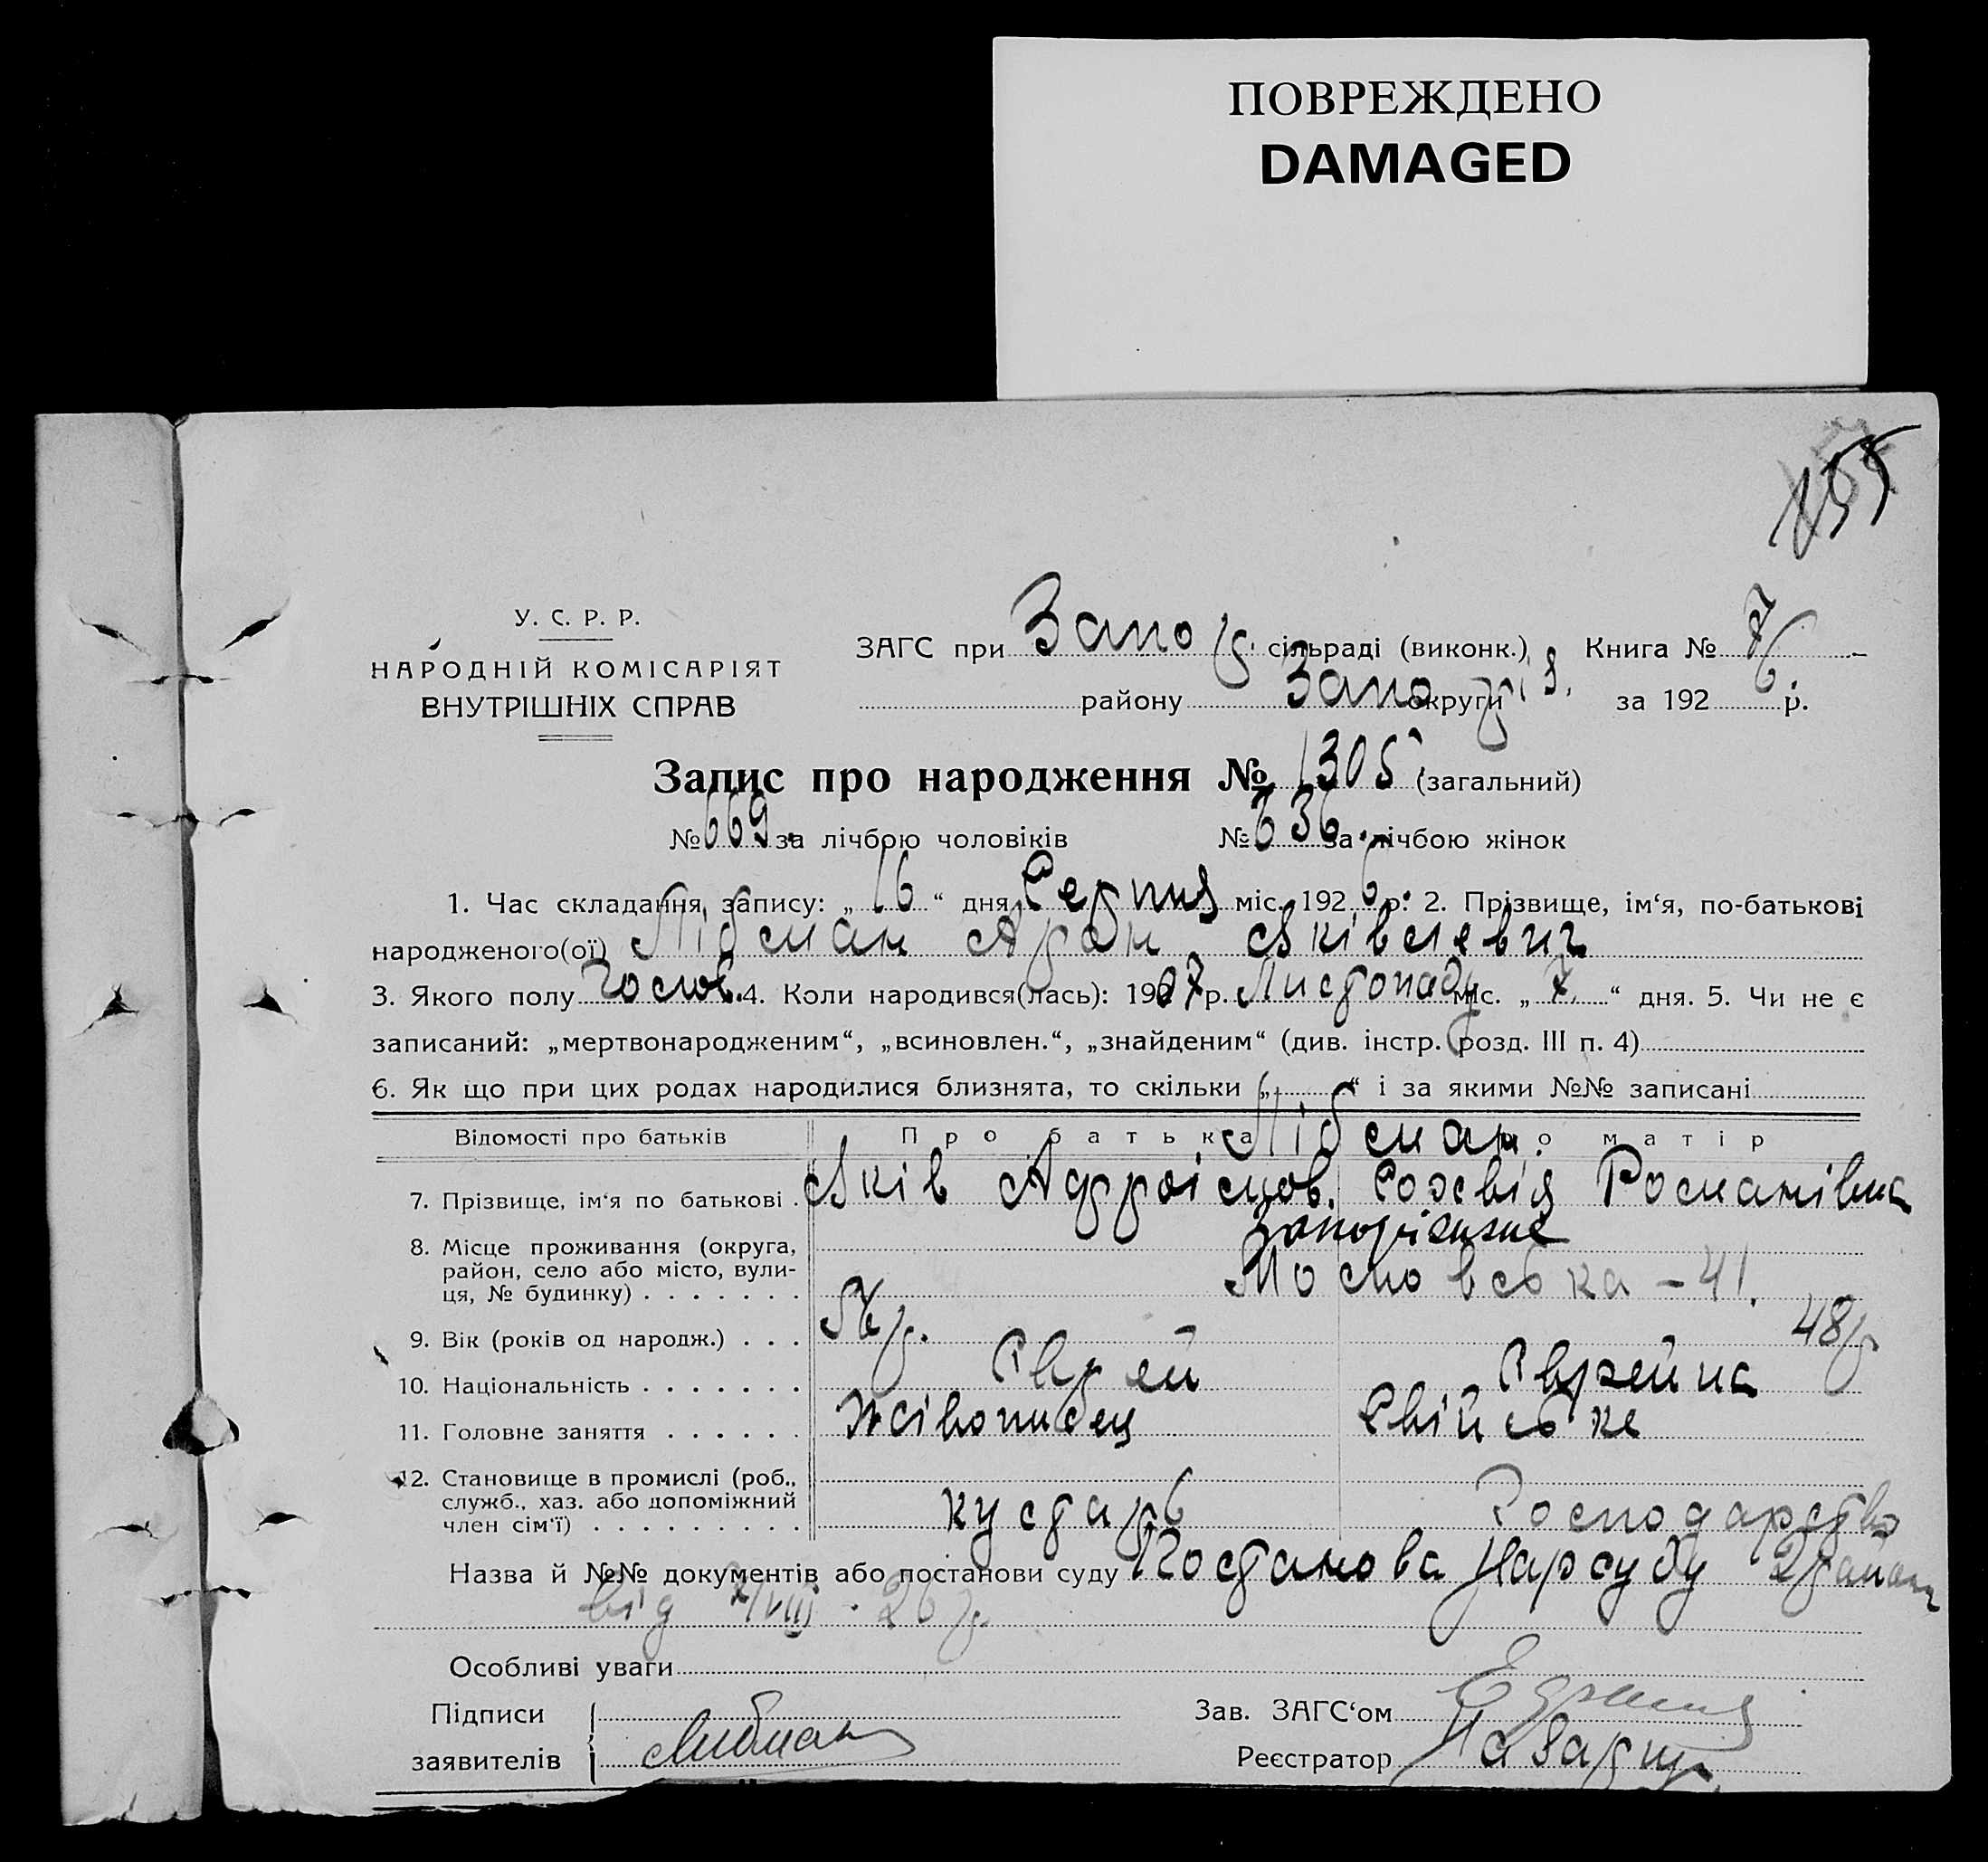 ПОВРЕЖДЕНО
DAMAGED
155
У. С. Р. Р.
НАРОДНІЙ КОМІСАРІЯТ
ВНУТРІШНІХ СПРАВ
ЗАГС при Запор. сільраді (виконк.) Книга № 7
району Запоріз. округи за 1926 р.
Запис про народження № 1305 (загальний)
№ 669 за лічбою чоловіків № 636 за лічбою жінок
1. Час складання запису: „16“ дня Серпня міс. 1926 р. 2. Прізвище, ім‘я, по-батькові
народженого(ої) Лібман Арон Яківлевич
3. Якого полу чолов. 4. Коли народився(лась): 1907 р. Листопаду міс. „7“ дня. 5. Чи не є
записаний: „мертвонародженим“, „всиновлен.“, „знайденим“ (див. інстр. розд. III п. 4)
6. Як що при цих родах народилися близнята, то скільки „ “ і за якими №№ записані
Відомості про батьків Про батька Про матір
Лібман
7. Прізвище, ім‘я по батькові . Яків Романівна
8. Місце проживання (округа, район, село або місто, вулиця, № будинку) Запоріжжє
Московська – 41.
9. Вік (років од народж.) . . . 48 р.
10. Національність . . . . . . . Єврей Єврейка
11. Головне заняття . . . . . . Жівописец Свійське
12. Становище в промислі (роб., служб., хаз. або допоміжний член сім‘ї) . . . . . . . . . кустарь Господарство
Назва й №№ документів або постанови суду Постанова Нарсуду 2 району
від /VIII - 26 р.
Особливі уваги
Підписи заявителів Либман
Зав. ЗАГС‘ом
Реєстратор